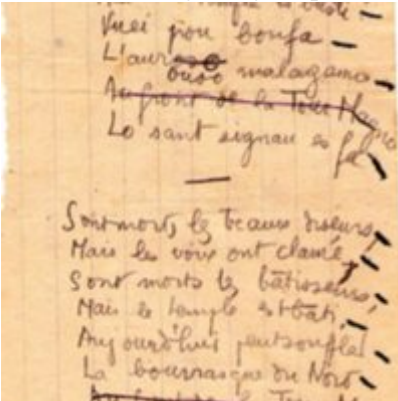 Vuei pou boufa
L'aurouso malagamo
Au front de la Tour Magno
Lo sant signau es fa
Sont morts, les beaux diseurs,
Mais les voix ont clamé,
Sont morts les bâtisseurs,
Mais le temple est bâti,
Aujourd'hui peut souffler
La bourrasque du Nord